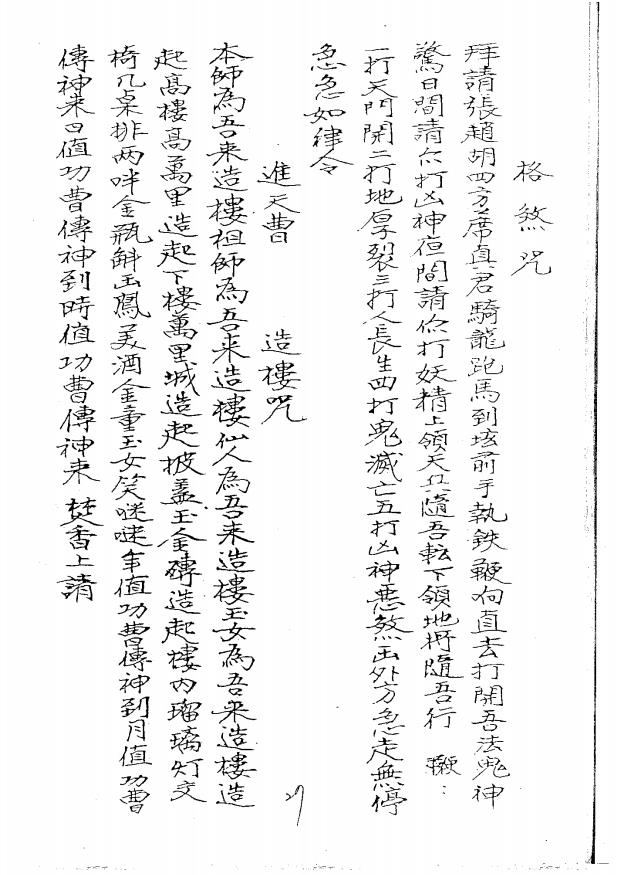 格煞咒
拜請張趙胡四方席真君騎龍跑馬到垓前手執鉄鞭向直去打開吾法鬼神
驚日間請你打凶神夜間請你打妖精上領天兵隨吾転下領地将隨吾行 鞭：
一打天門開二打地厚裂三打人長生四打鬼滅亡五打凶神悪煞出外方急走無停
急急如律令
進天曹 造樓咒
本師為吾来造樓祖師為吾来造樓仙人為吾来造樓玉女為吾来造樓造
起高樓高萬里造起下樓萬里城造起披蓋玉金磚造起樓内瑠璃灯交
椅几桌排两畔金瓶斟出鳳美酒金童玉女笑咪咪年值功曹傳神到月值功曹
傳神来日值功曹傳神到時值功曹傳神来 焚香上請
27